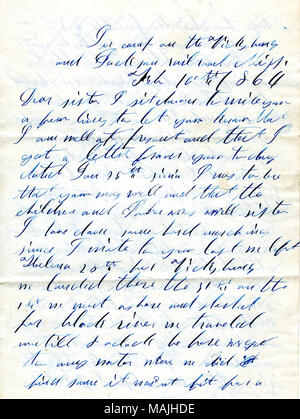 In camp on the Vicksburg
and Jackson rail road Missi
Feb 10th 1864
Dear sister I sit down to write you
a few lines to let you know that
I am well at present and that I
got a letter from you to day
dated Jan 25th
that you was well and that the
children and was well sister
I have done some hard marching
since I wrote to you last we left
Helena 28th for Vicksburg
we landed there the 31st on the
1st we went ashore and started
for black river we traveled
until 8 oclock before we got
to any water where we did
find some it wasnt fit for a
alamy
Image ID: MAJHDE
www.alamy.com